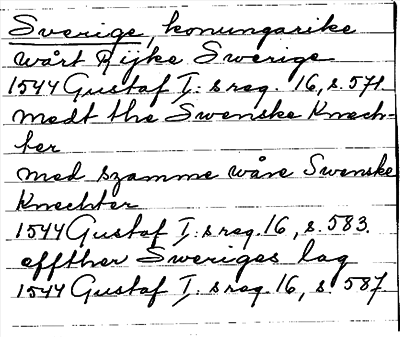 Sverige, konungarike
wårt Rijke Swerige
1544 Gustaf I:s reg. 16, s. 571.
medt the Swenske Knech-
ter
med szamme wåre Swenske
Knechter
1544 Gustaf I:s reg. 16, s. 583.
effther Sweriges lag
1544 Gustaf I:s reg. 16, s. 587.